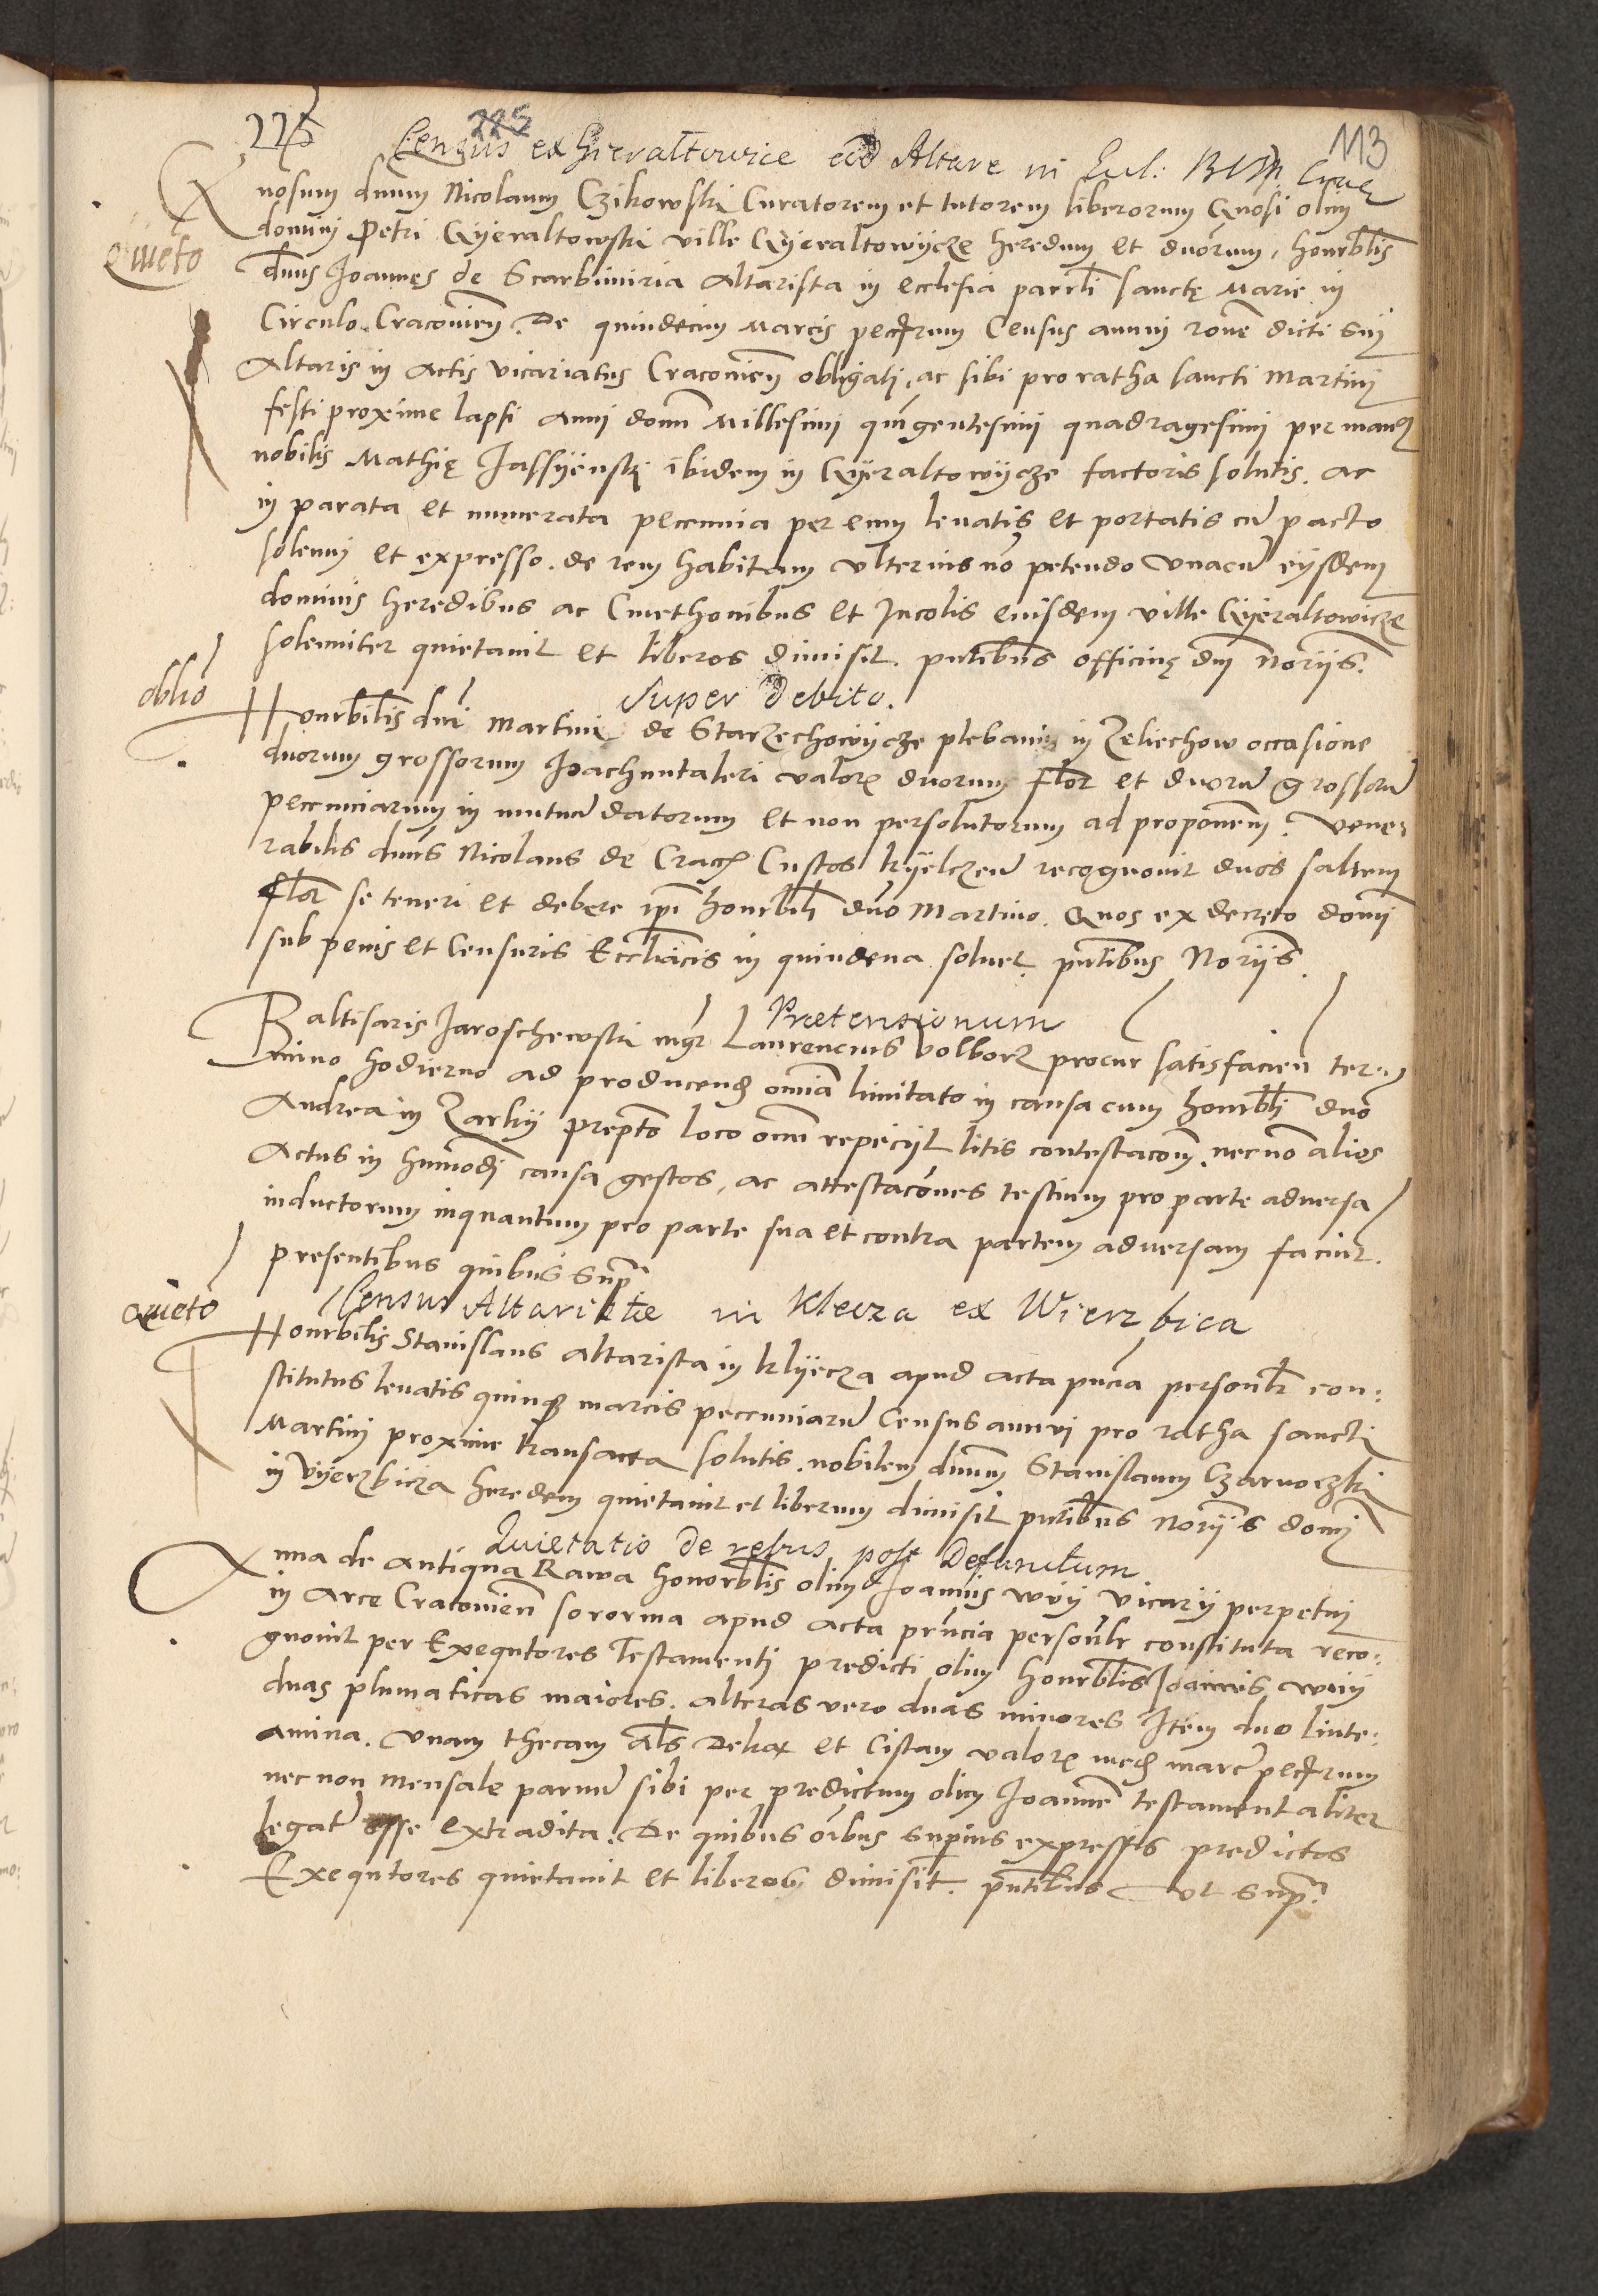 225 225 113
Census ex Gieraltowice ad Altare in Eccl: BVM Crac
Gnosum dnum Nicolaum Czikowski Curatorem et tutorem liberorum Gnosi olim
quieto
domini Petri Gyeraltowski ville Gyeraltowycze heredum et dnorum, honrblis
dnus Joannes de Scarbimiria Altarista in ecclesia parrli sancte Marie in
Circulo Cracovien. De quindecim Marcis peccrum Census annui rone dicti sui
Altaris in Actis vicariatus Cracovien obligati, ac sibi pro ratha sancti Martini
festi proxime lapsi Anni domi Millesimi quigentesimi quadragesimi per manus
nobilis Mathie Jassyenski ibidem in Gyeraltowycze factoris solutis. ac
in parata et numerata peccunia per eum levatis et portatis cu pacto
solenni et expresso. de rem habitam ulterius no petendo unacu eysdem
dominis heredibus ac Cmethonibus et Incolis eiusdem ville Gyeraltowicze
solenniter quietavit et liberos dimisit. pntibus officine dni Noriis.
oblio
Super Debito.
Honrbilis dni Martini de Starzechowycze plebanus in Zeliechow occasione
duorum grossorum Joachimtaleri valoris duorum flor et duoru grossoru
pecuniarum in mutuu datorum et non persolutorum ad proponem. Vene:
rabilis dnus Nicolaus de Crac Custos kyelczen recognovit duos saltem
flor se teneri et debere ipi honrbili dno Martino. Quos ex decreto domi
sub penis et Censuris Eccliacis in quindena solvet. pntibus Noriis.
Praetensionum
Baltisaris Jaroschewski mgr Laurencius volborz procur satisfacien ter:
mino hodierno ad producend omia limitato in causa cum honrbli dno
Andrea in Zarky prepto loco omi repeciyt litis contestacom. necno alios
Actus in huiusmodi causa gestos, ac attestacones testium pro parte adversa
inductorum inquantum pro parte sua et contra partem adversam faciut.
presentibus quibus sup
Census Altaristae in Klecza ex Wierzbica
quieto
Honrbilis Stanislaus altarista in klyecza apud acta pncia personlr con:
stitutus levatis quinq marcis peccuniaru Census annui pro ratha sancti
Martini proxime transacta solutis. nobilem dnum Stanislaum Czarnoczki
in Vyerzbicza heredem quietavit et liberum dimisit pntibus Noriis domi
Quietatio de rebus post Defunctum
Anna de antiqua Rawa honorblis olim Joannis wuy vicarii perpetui
in Arce Cracovien sororina apud acta prncia personlr constituta reco:
gnovit per Exequtores Testamenti predicti olim honrblis Joannis wuy
duas plumaticas maiores. alteras vero duas minores Item duo linte:
amina. Unam thecam als Dekar et Cistam valoris med marce peccrum
nec non Mensale parvu sibi per predictum olim Joanne testamentaliter
legat esse extradita. De quibus oibus superius expressis predictos
Exequtores quietavit et liberos dimisit. pntibus ut sup.